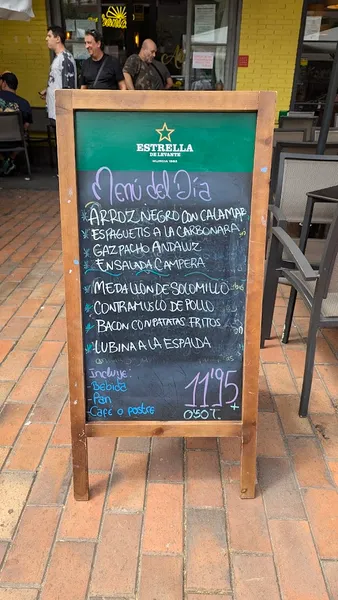 ESTRELLA
DE LEVANTE
Menú del Día
ARROZ NEGRO CON CALAMAR
ESPAGUETIS A LA CARBONARA
GAZPACHO ANDALUZ
ENSALADA CAMPERA
MEDALLÓN DE SOLOMILLO
CONTRAMUSLO DE POLLO
BACON CON PATATAS FRITOS
LUBINA A LA ESPALDA
Incluye:
-Bebida
-Pan
-Café o postre
11'95
+
0'50 T.